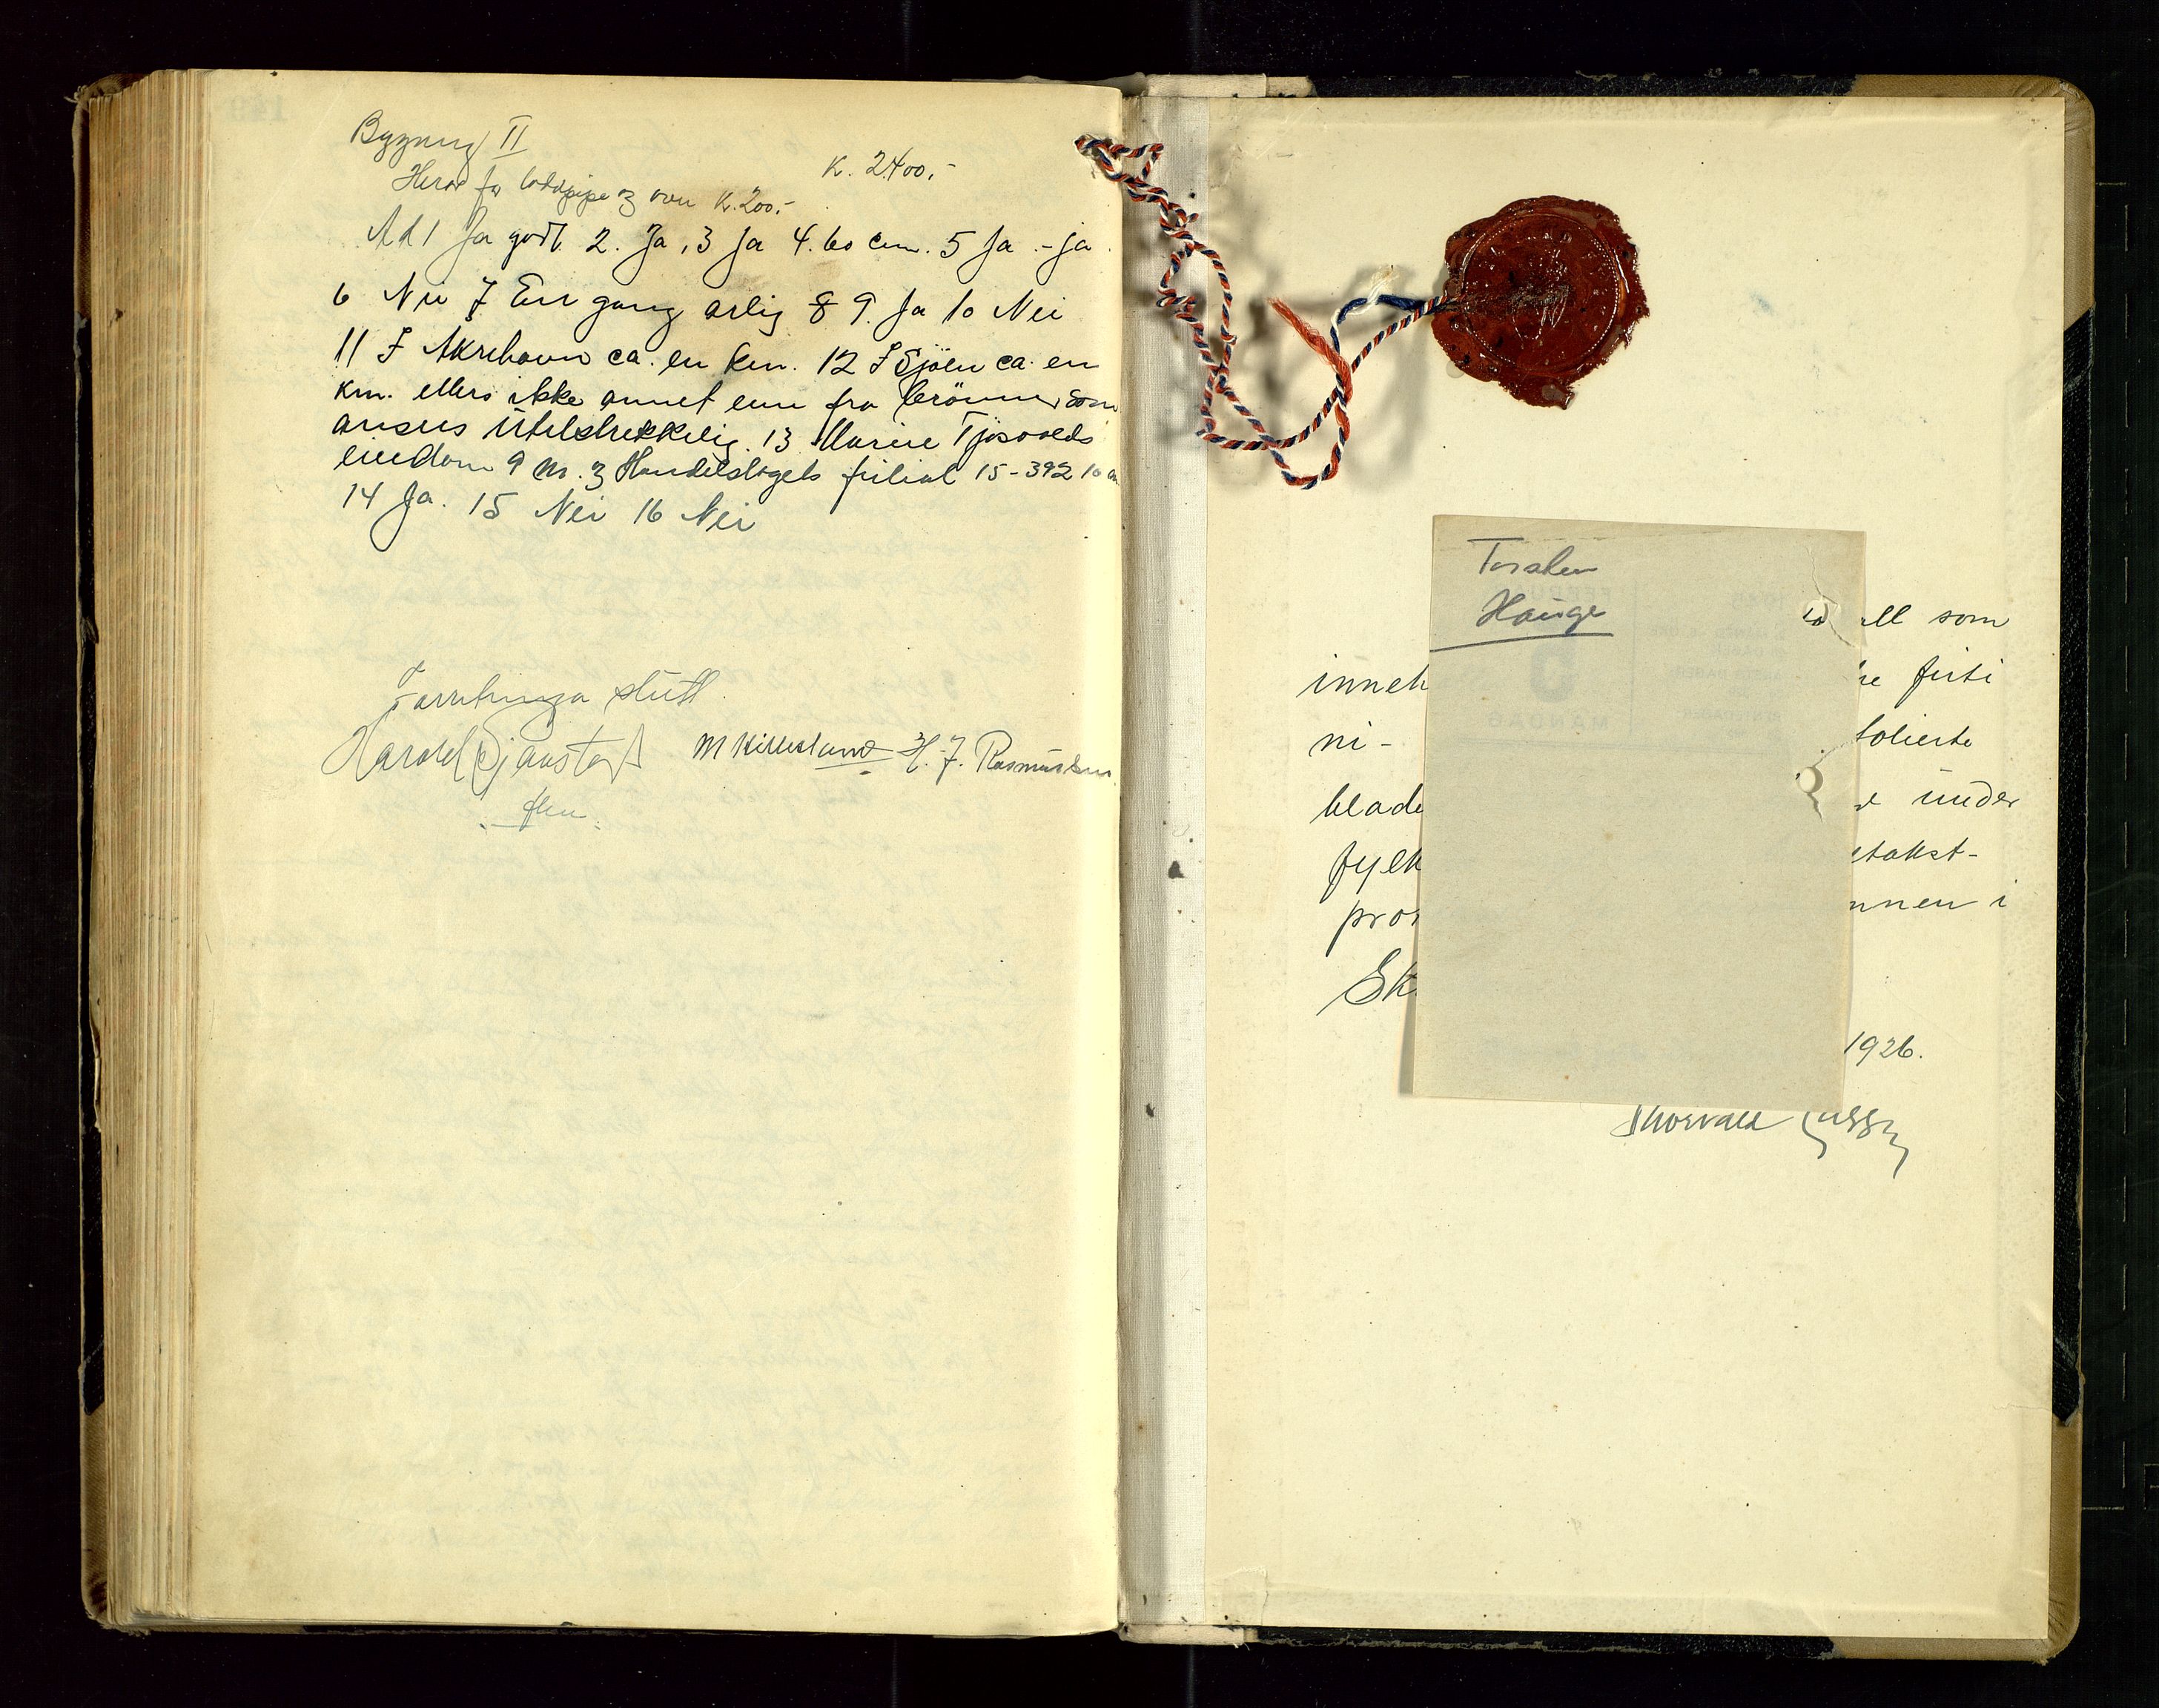 Bygning II
K. 2400,-
Herav for loddpipe og ovn K. 200.-
Ad 1 Ja godt 2. Ja, 3 Ja 4. 60 cm. 5 Ja - ja
6 Nei 7 En gang årlig 8 9. Ja 10 Nei
11 I Åkrehavn ca. en km. 12 I Sjöen ca. en
km. ellers ikke annet enn fra brönner som
ansees utilstrekkelig. 13 Marie Tjösvolds
eiendom 9 m. og Handelslagets filial 15-392 10 m
14 Ja. 15 Nei 16 Nei
Forretninga slutt.
Harald M Killesland H. J. Rasmussen
Torsten
Hauge
ell som
inneh re firti
ni- folierte
blade under
fylk etakst-
pro nnen i
Sk.
1926.
Thorvald